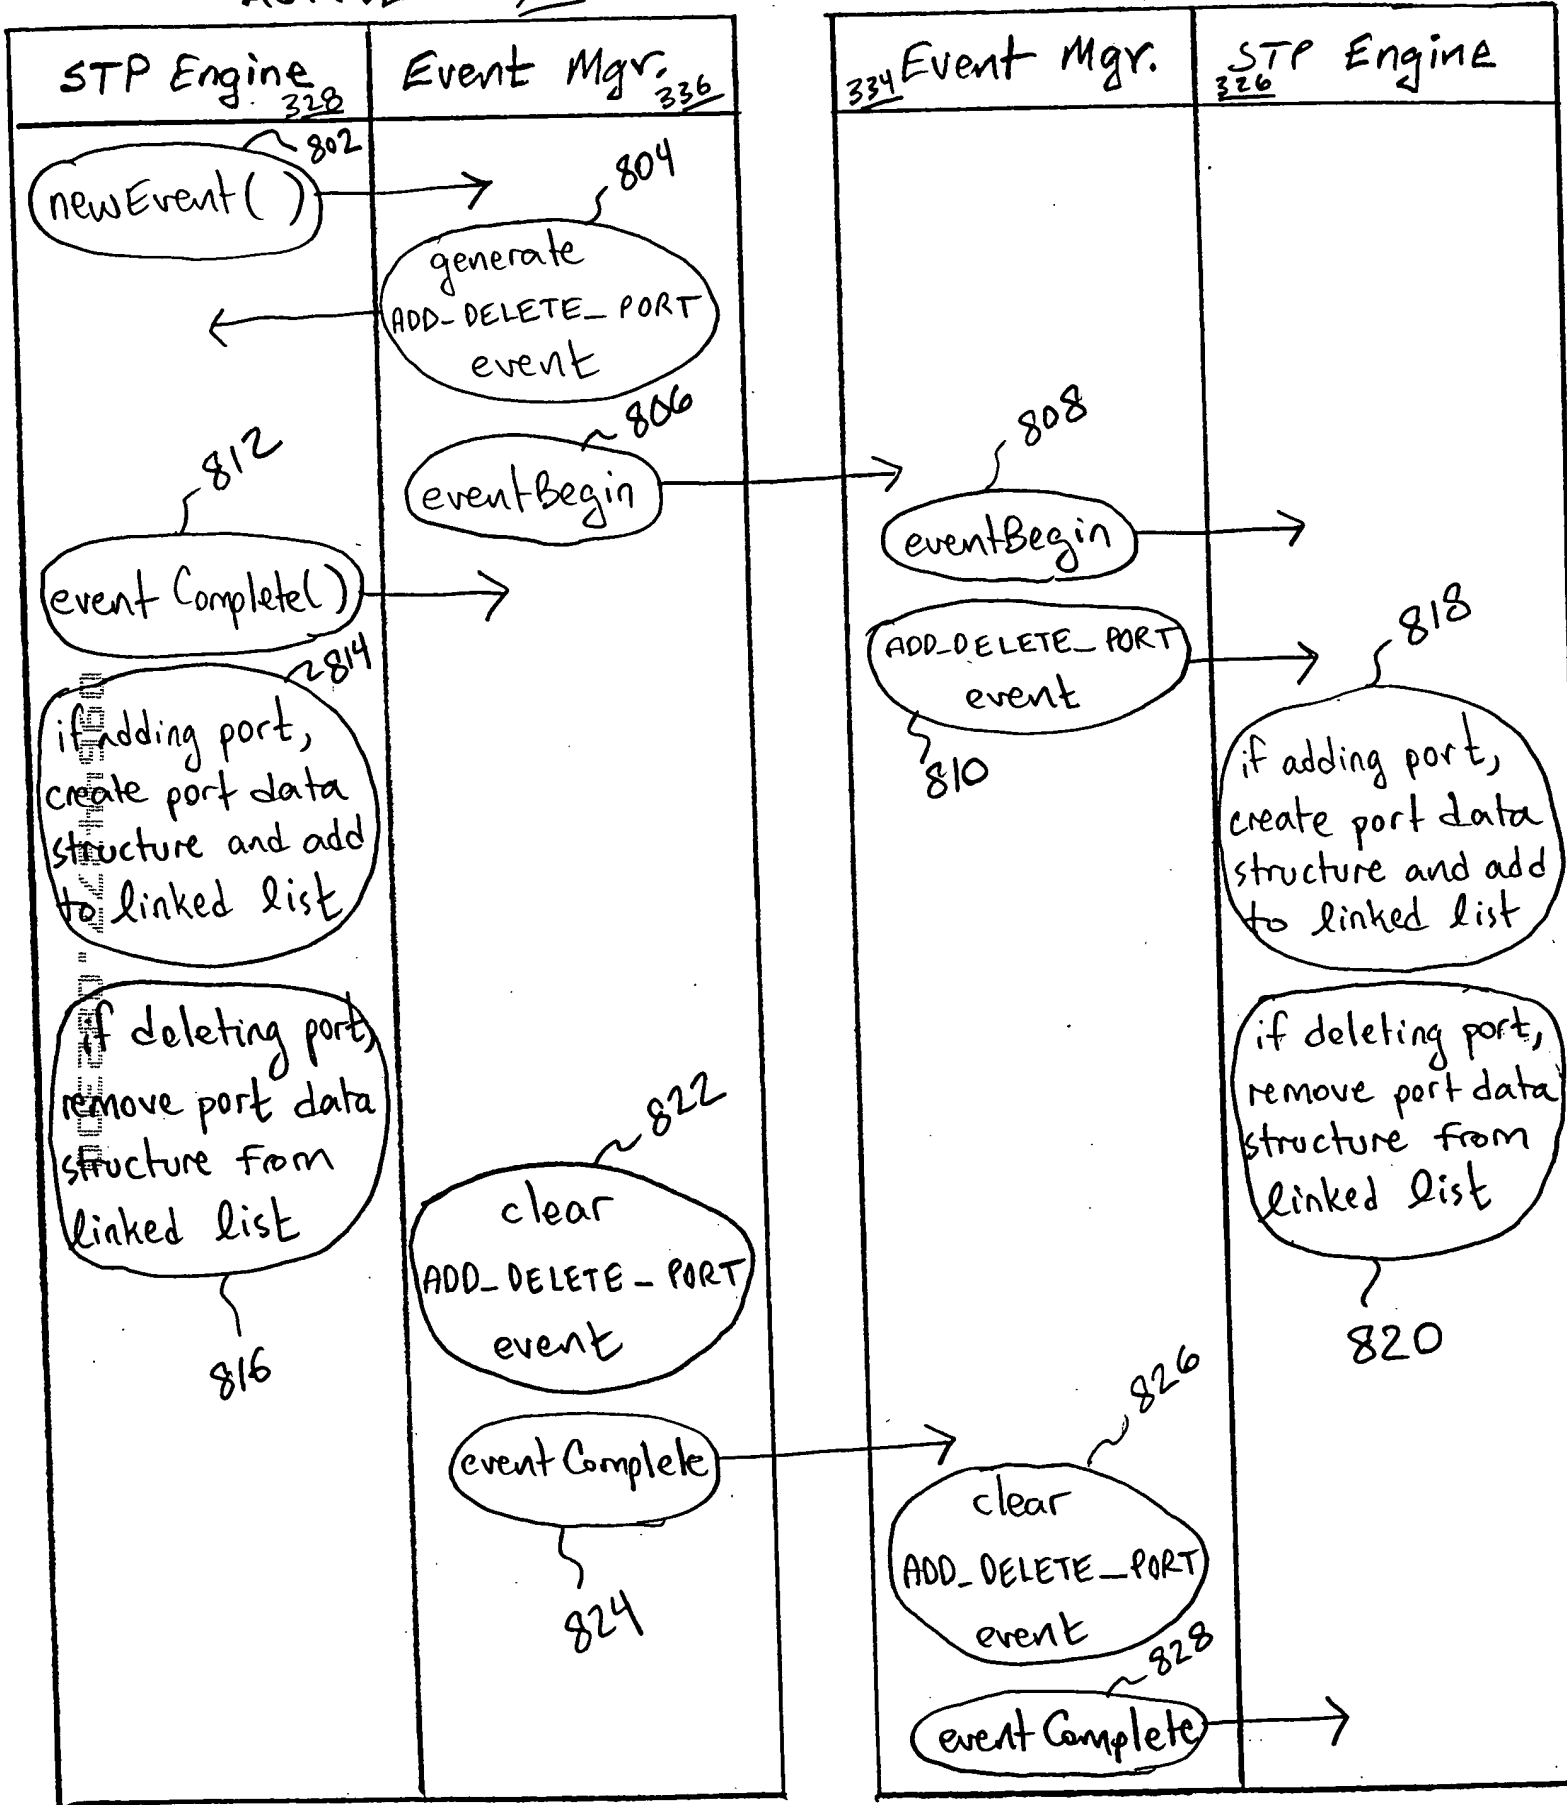 ACTIVE
STP Engine
328
Event Mgr.
336
334
Event Mgr.
STP Engine
326
802
newEvent( )
804
generate
ADD_DELETE_PORT
event
806
eventBegin
808
eventBegin
812
event Complete()
ADD_DELETE_PORT
event
810
814
if adding port,
create port data
structure and add
to linked list
818
if adding port,
create port data
structure and add
to linked list
if deleting port,
remove port data
structure from
linked list
816
if deleting port,
remove port data
structure from
linked list
820
822
clear
ADD_DELETE_PORT
event
event Complete
824
826
clear
ADD_DELETE_PORT
event
828
event Complete